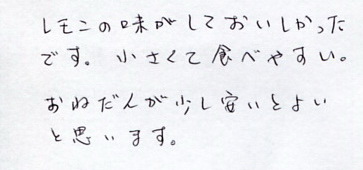 レモンの味がしておいしかった
です。小さくて食べやすい。
おねだんが少し安いとよい
と思います。